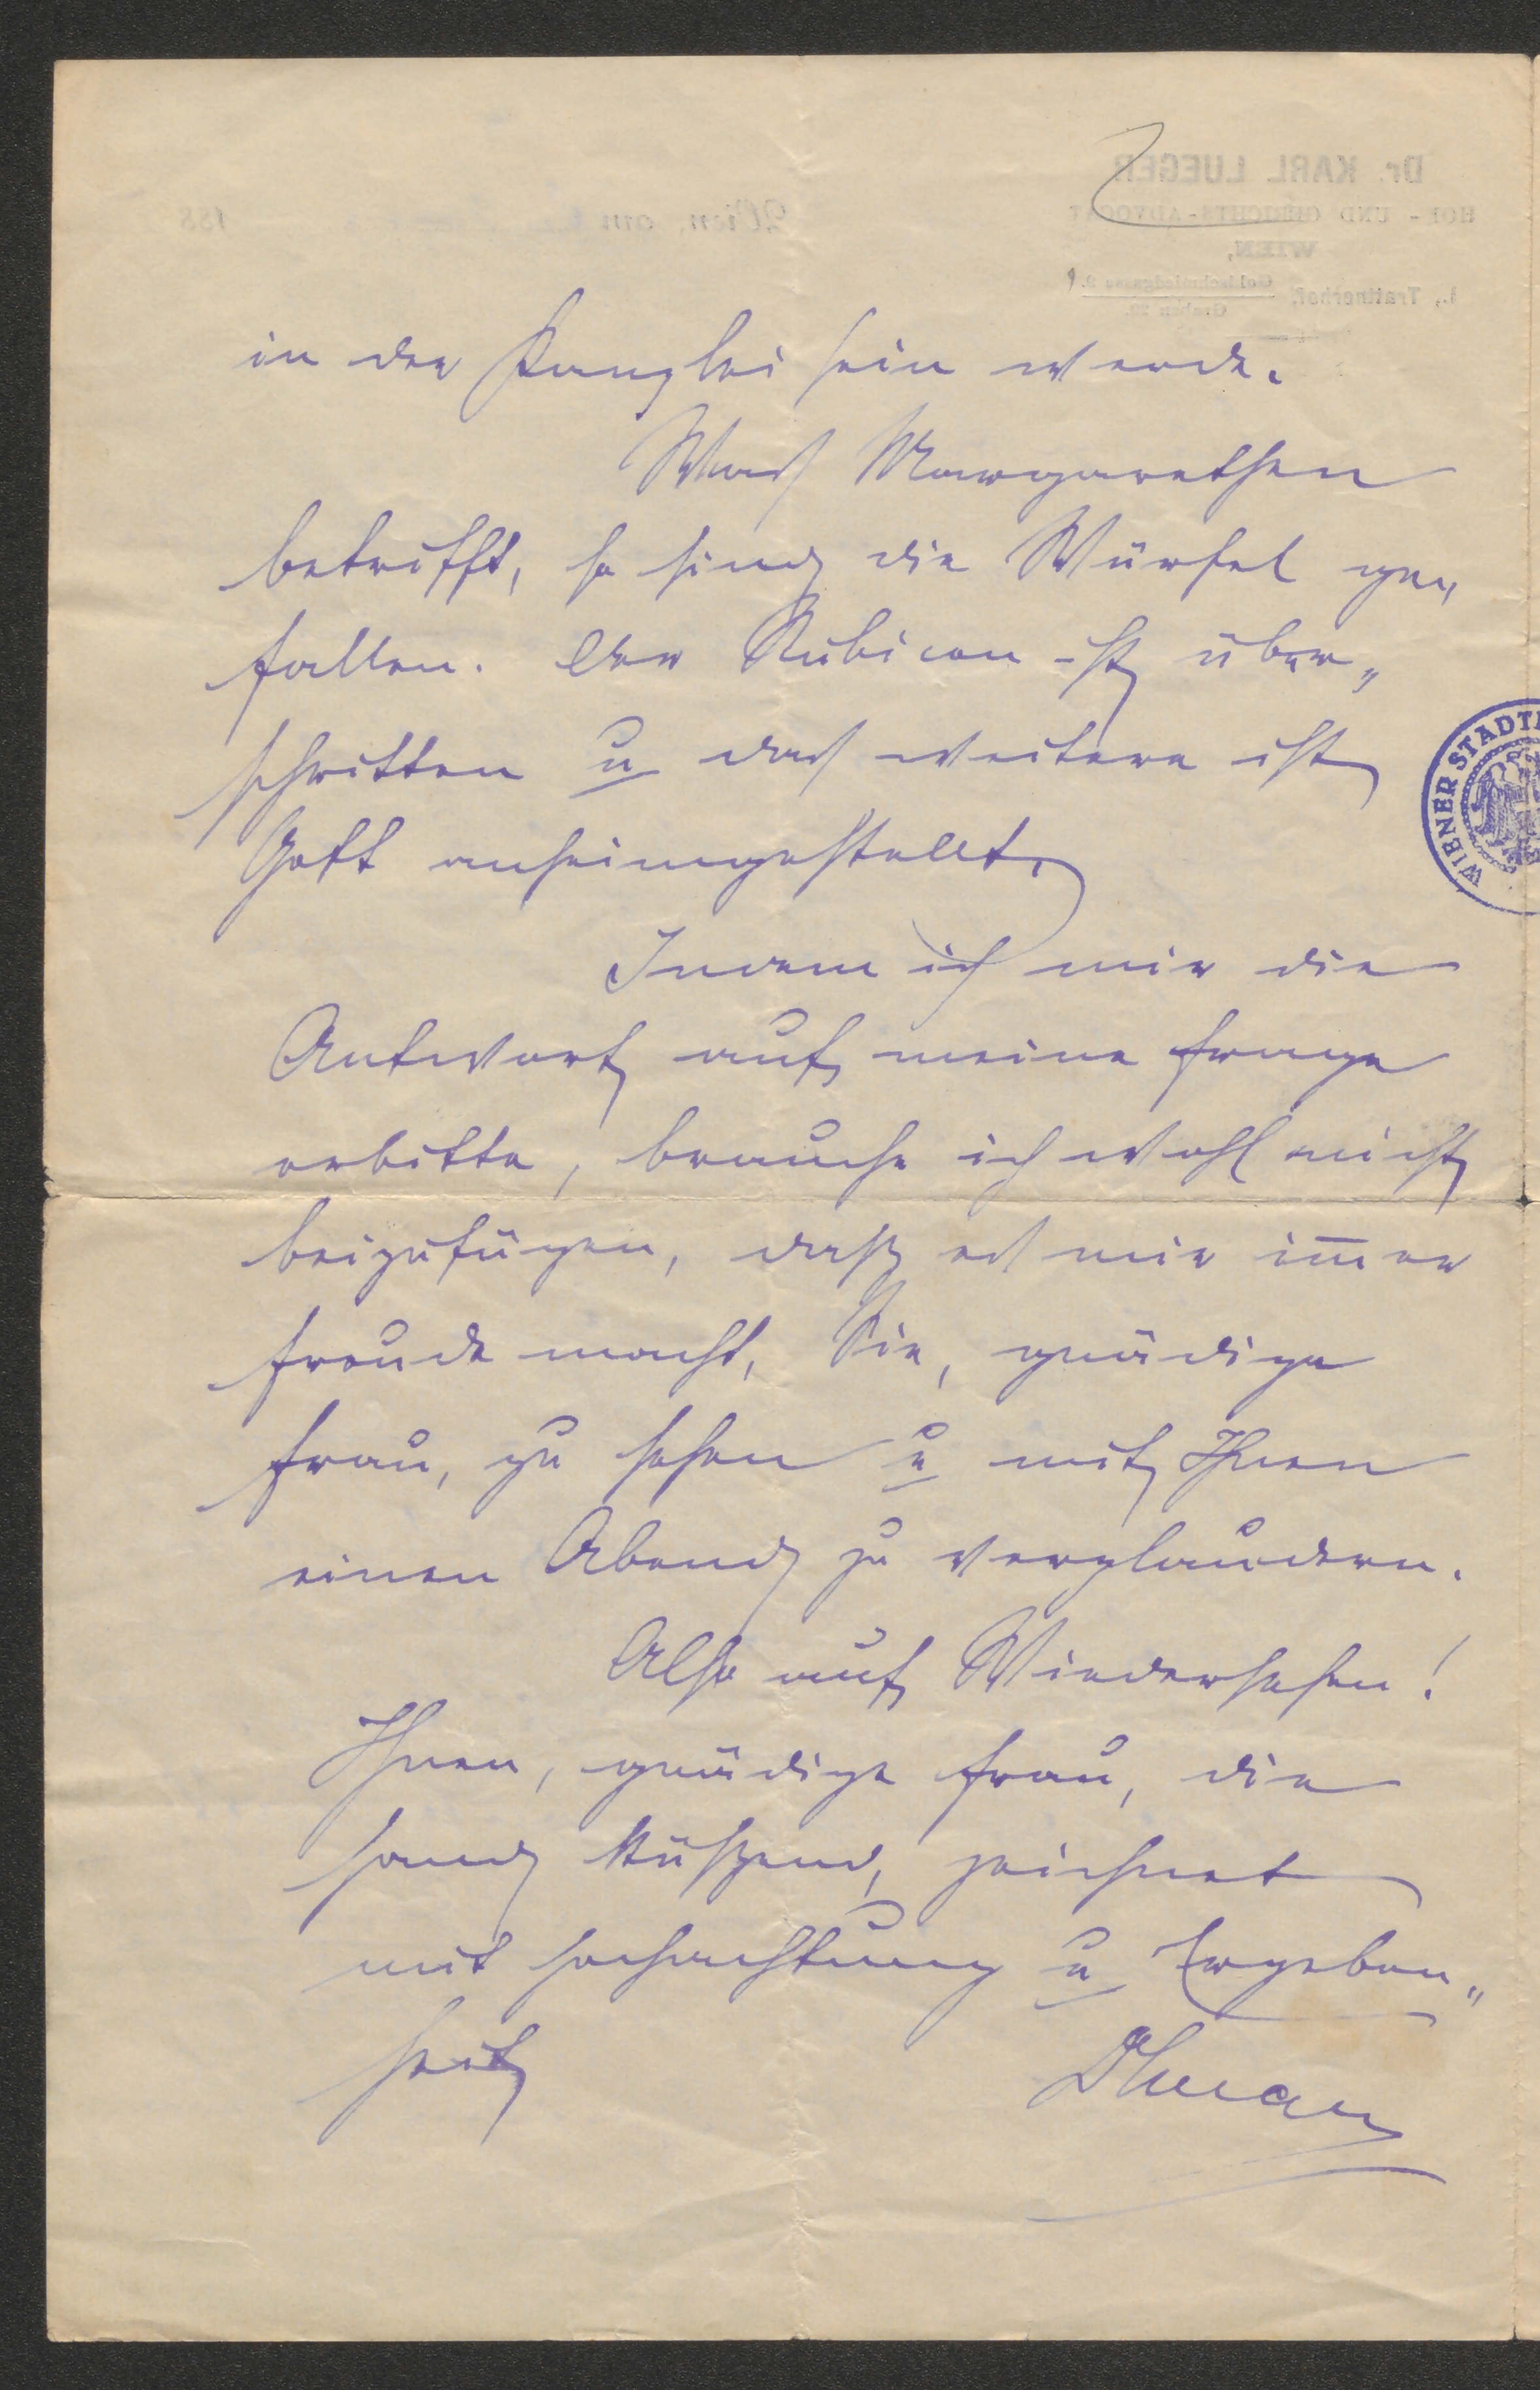 Dr. KARL LUEGER
HOF- UND GERICHTS-ADVOCAT
WIEN,
I., Trattnerhof, Goldschmiedgasse 9.
Graben 29.
Wien, am 188
in der Kanzlei sein werde.
Was Margarethen
betrifft, so sind die Würfel ge„
fallen. Der Rubicon ist über„
schritten u das weitere ist
Gott anheimgestellt.
Indem ich mir die
Antwort auf meine Frage
erbitte, brauche ich wohl nicht
beizufügen, daß es mir im̅er
Freude macht, Sie, gnädige
Frau, zu sehen u mit Ihnen
einen Abend zu verplaudern.
Also auf Wiedersehen!
Ihnen, gnädige Frau, die
Hand küßend, zeichnet
mit Hochachtung u Ergeben„
heit
WIENER STADT